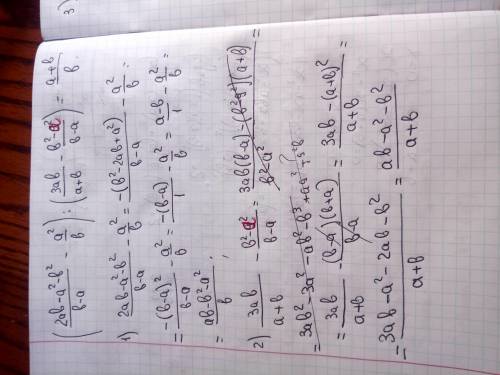 3)
( (2ab-a²-b²)/(b-a) - a²/b ) : ( 3ab/(a+b) - (b²-a²)/(b-a) ) = (a+b)/b.
1) (2ab-a²-b²)/(b-a) - a²/b = -(b²-2ab+a²)/(b-a) - a²/b =
= -(b-a)²/(b-a) - a²/b = -(b-a)/1 - a²/b = (a-b)/1 - a²/b =
= (ab-b²-a²)/b ;
2) 3ab/(a+b) - (b²-a²)/(b-a) = (3ab(b-a)-(b²-a²)(a+b))/(b²-a²) =
= 3ab/(a+b) - (b-a)(b+a)/(b-a) = (3ab-(a+b)²)/(a+b) =
= (3ab-a²-2ab-b²)/(a+b) = (ab-a²-b²)/(a+b)